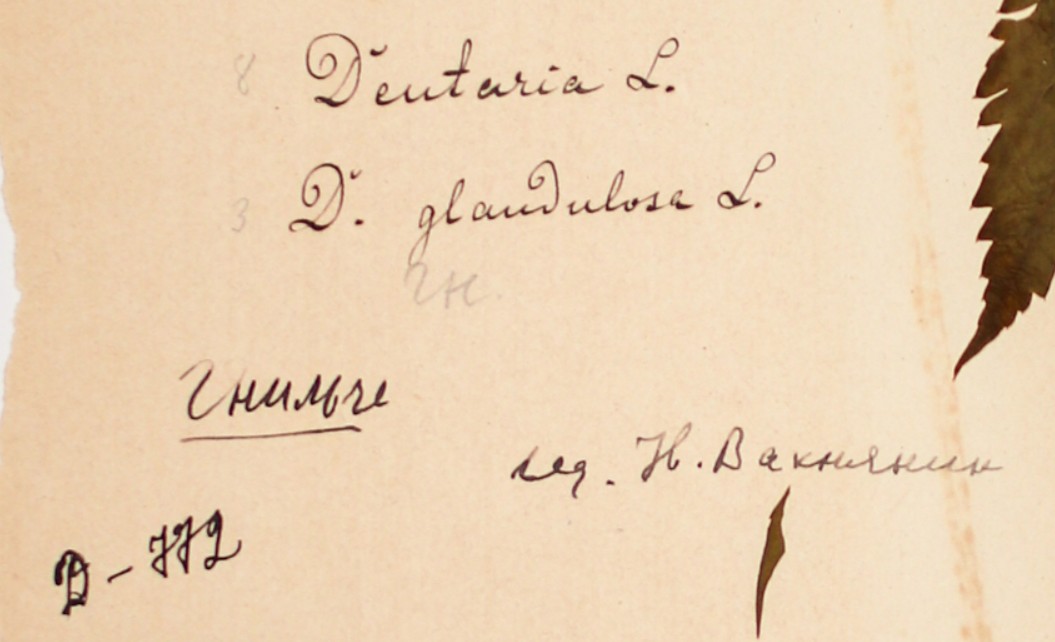 8 Dentaria L.
3 D. glandulosa L.
Гн.
Гнильче
leg. Н. Вакнянин
D-772